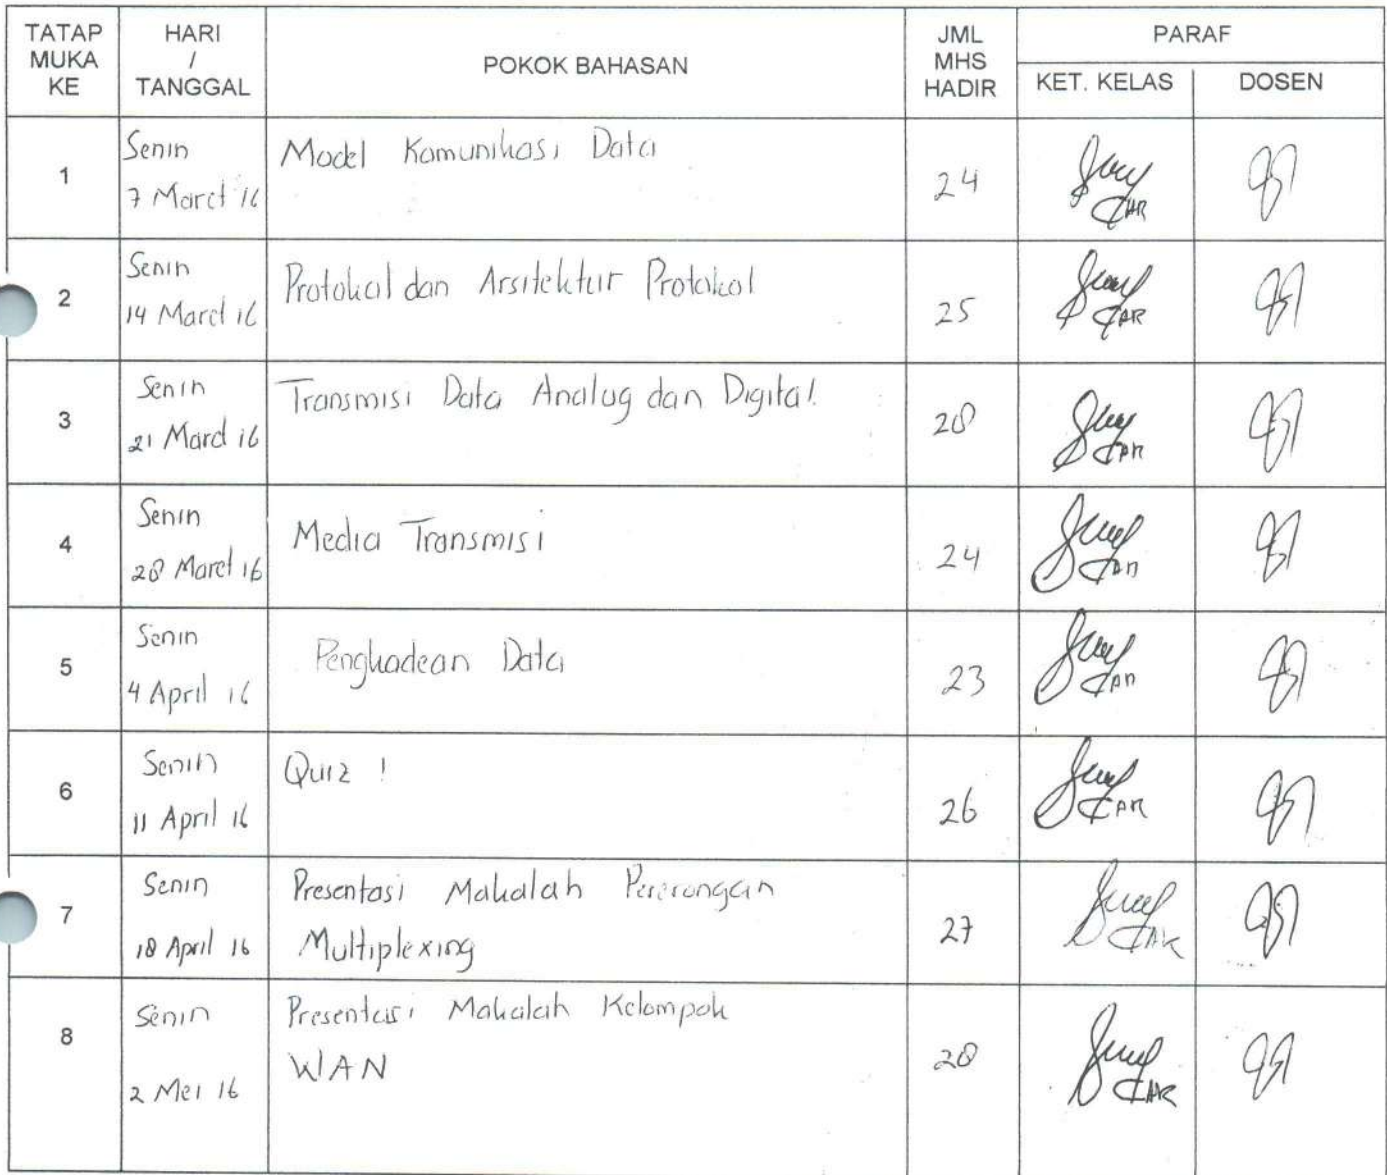 TATAP MUKA KE
HARI / TANGGAL
POKOK BAHASAN
JML MHS HADIR
PARAF
KET. KELAS
DOSEN
1
Senin
7 Maret '16
Model Komunikasi Data
24
2
Senin
14 Maret 16
Protokol dan Arsitektur Protokol
25
3
Senin
21 Maret 16
Transmisi Data Analog dan Digital.
28
4
Senin
28 Maret 16
Media Transmisi
24
5
Senin
4 April 16
Pengkodean Data
23
6
Senin
11 April 16
Quiz !
26
7
Senin
18 April 16
Presentasi Makalah
Multiplexing
27
8
Senin
2 Mei 16
Presentasi Makalah Kelompok
WAN
28